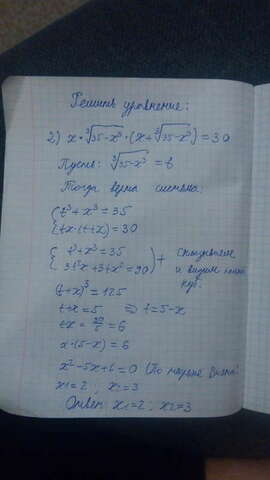 Решить уравнение:
2) x·∛35-x³·(x+∛35-x³)=30
Пусть: ∛35-x³ = t
Тогда
{t³+x³=35
{tx·(t+x)=30
{t³+x³=35
{3t²x+3tx²=90 } + складываем и видим
куб.
(t+x)³=125
t+x=5 ⇒ t=5-x
tx=30/5=6
x·(5-x)=6
x²-5x+6=0 (По теореме Виета:
x₁=2; x₂=3
Ответ: x₁=2; x₂=3